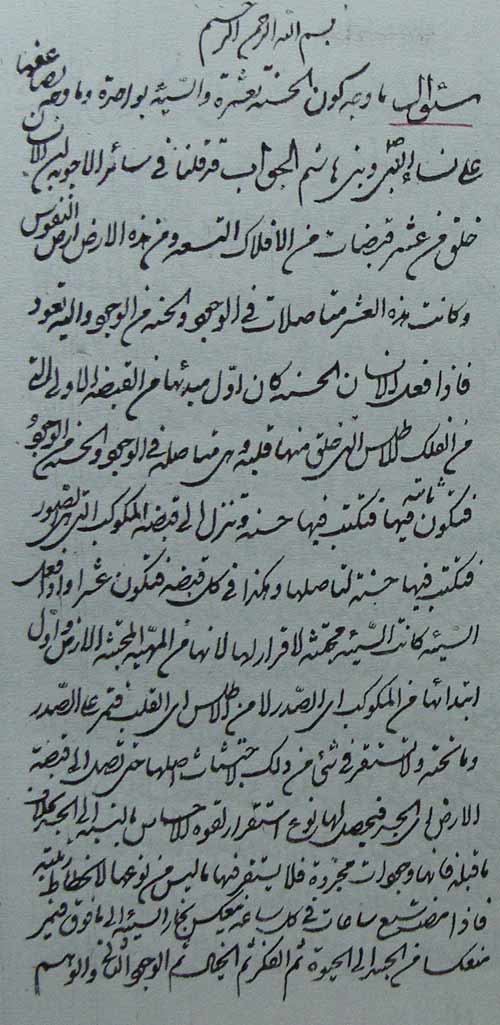 بسم الله الرحمن الرحيم
سئوال ما وجه كون الحسنة بعشرة والسيئه بواحدة وما وجه تضاعفها
على نساء النبى وبنى هاشم الجواب قد قلنا فى سائر الاجوبه ان الانسان
خلق من عشر قبضات من الافلاك التسعه ومن هذه الارض ارض النفوس
وكانت هذه العشر متاصلات فى الوجود والحسنه من الوجود واليه تعود
فاذا فعل الانسان الحسنه كان اول مبدئها من القبضه الاولى التى
من الفلك الاطلس التى خلق منها قلبه وهى متاصله فى الوجود والحسنه من الوجود
فتكون ثابته فيها فتكتب فيها حسنه وتنزل الى قبضة المكوكب التى هى الصدور
فتكتب فيها حسنة لتاصلها وهكذا فى كل قبضه فتكون عشرا واذا فعل
السيئه كانت السيئه مجتثه لا قرار لها لانها من المهيه المجتثه الارض واول
ابتدائها من المكوكب اى الصدر لا من الاطلس اى القلب فتمر على الصدر
وما تحته ولا تستقر فى شئ من ذلك لاجتثاث اصلها حتى تصل الى قبضة
الارض اى الجسد فيحصل لها نوع استقرار لقوة الاحساس بالنسبه الى الجسد بخلاف
ما قبله فانها وجودات مجردة فلا يستقر فيها ما ليس من نوعها لانحطاط رتبته
فاذا مضت سبع ساعات فى كل ساعه ينعكس بخار السيئه الى ما فوق فتمر
منعكسا من الجسد الى الحيوة ثم الفكر ثم الخيال ثم الوجود الثانى والوهم